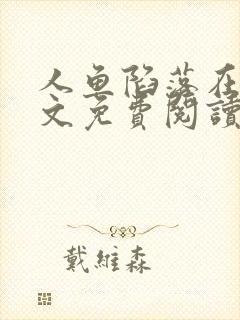 人魚陷落在
文免費閱讀
戴維森